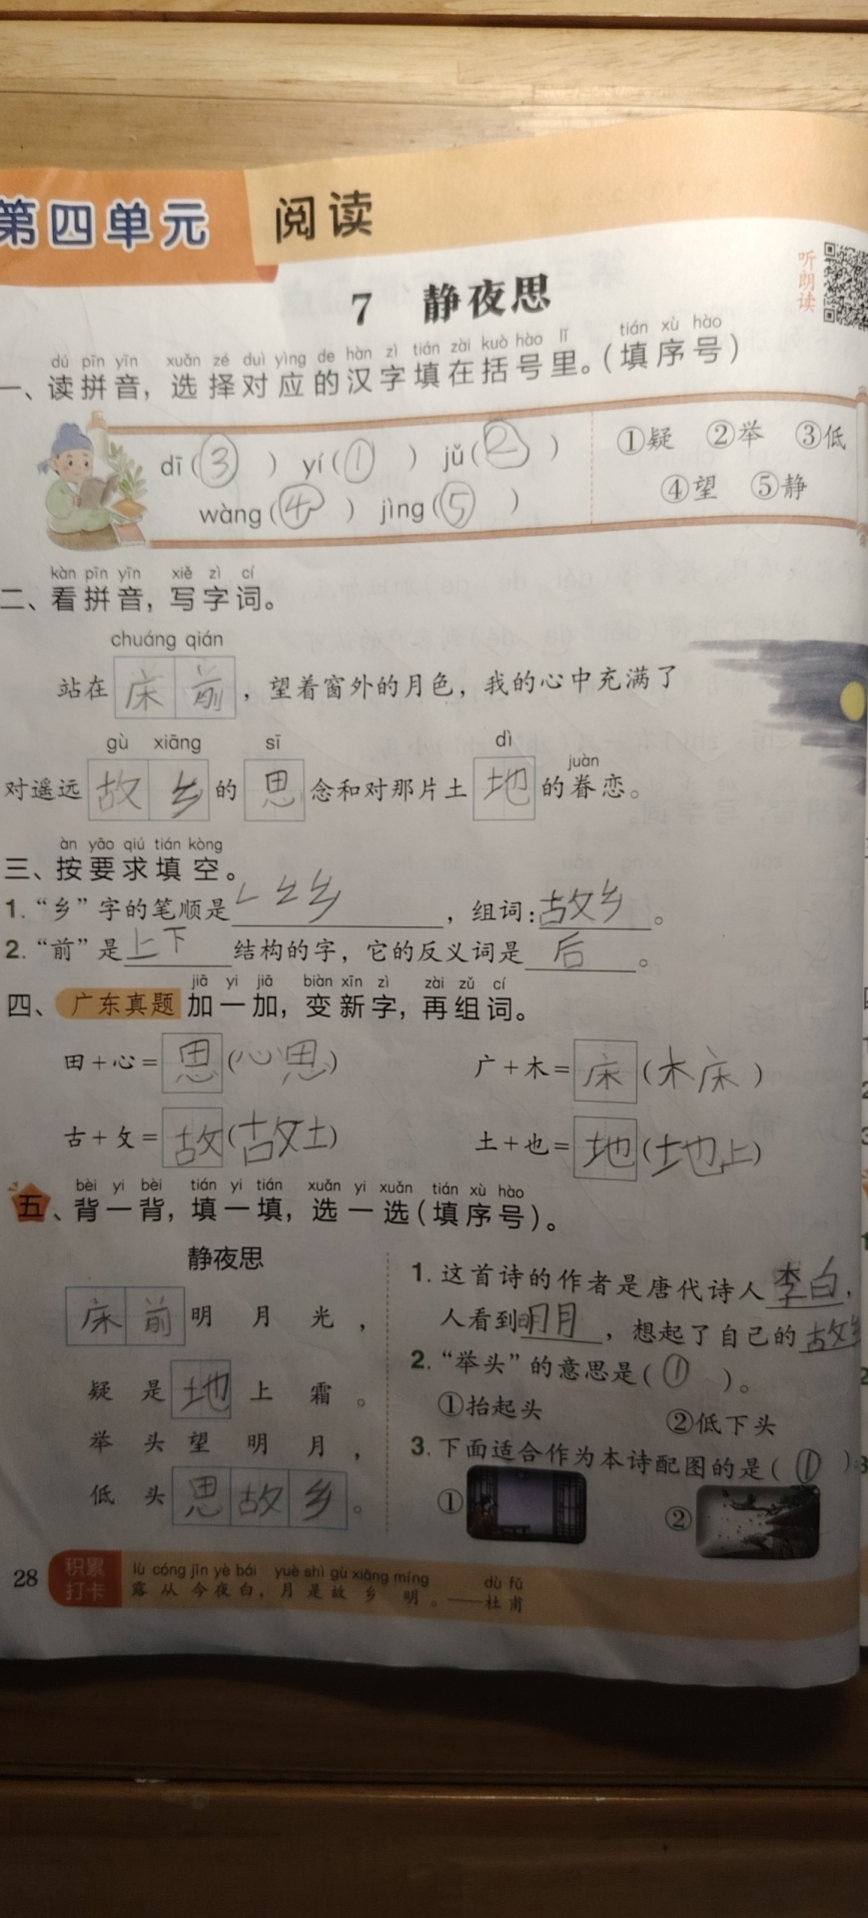 第四单元 阅读
听朗读
7 静夜思
dú pīn yīn xuǎn zé duì yìng de hàn zì tián zài kuò hào lǐ tián xù hào
一、读拼音，选择对应的汉字填在括号里。(填序号)
dī(③) yí(①) jǔ(②) ①疑 ②举 ③低
wàng(④) jìng(⑤) ④望 ⑤静
kàn pīn yīn xiě zì cí
二、看拼音，写字词。
chuáng qián
站在床前，望着窗外的月色，我的心中充满了
gù xiāng sī dì juàn
对遥远故乡的思念和对那片土地的眷恋。
àn yāo qiú tián kòng
三、按要求填空。
1.“乡”字的笔顺是𠃋 乡，组词:故乡。
2.“前”是上下结构的字，它的反义词是后。
jiā yi jiā biàn xīn zì zài zǔ cí
四、广东真题 加一加，变新字，再组词。
田+心=思(心思) 广+木=床(木床)
古+攵=故(故土) 土+也=地(地上)
bèi yi bèi tián yi tián xuǎn yi xuǎn tián xù hào
五、背一背，填一填，选一选(填序号)。
静夜思
床前明月光，
疑是地上霜。
举头望明月，
低头思故乡。
1.这首诗的作者是唐代诗人李白，
人看到明月，想起了自己的故乡
2.“举头”的意思是(①)。
①抬起头 ②低下头
3.下面适合作为本诗配图的是(①)。
① ②
28 积累打卡
lù cóng jīn yè bái yuè shì gù xiāng míng dù fǔ
露从今夜白，月是故乡明。——杜甫